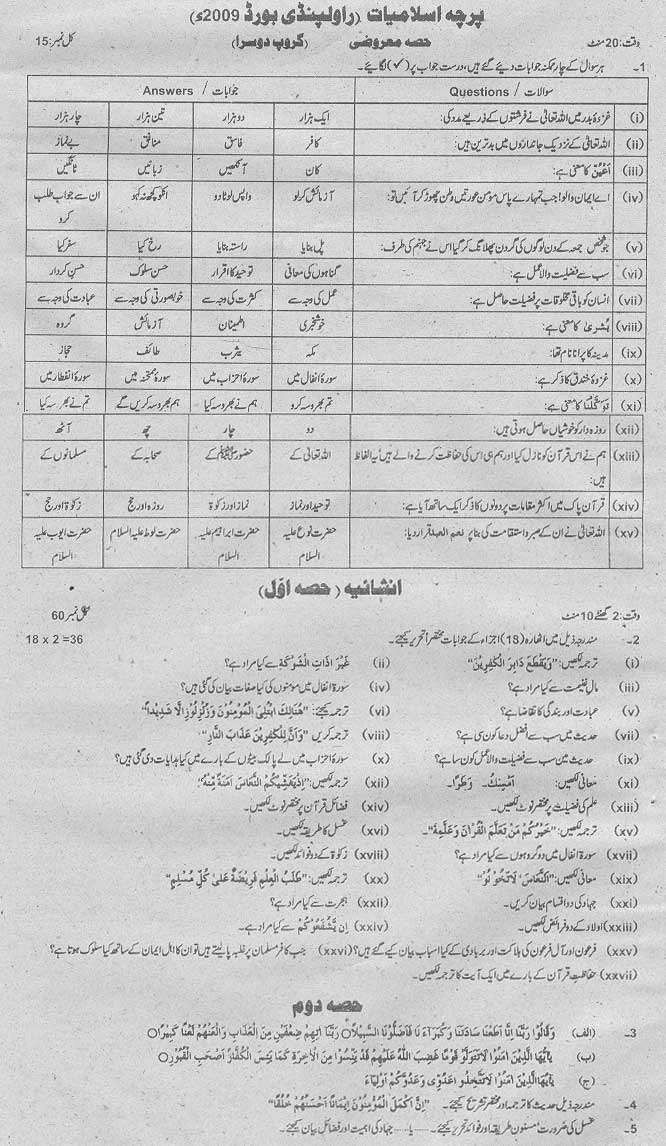 پرچہ اسلامیات (راولپنڈی بورڈ 2009ء)
وقت: 20 منٹ حصہ معروضی (گروپ دوسرا) کل نمبر: 15
1- ہر سوال کے چار ممکنہ جوابات دیئے گئے ہیں، درست جواب پر (✓) لگائیے۔
سوالات / Questions جوابات / Answers
(i) غزوۂ بدر میں اللہ تعالیٰ نے فرشتوں کے ذریعے مدد کی: ایک ہزار دو ہزار تین ہزار چار ہزار
(ii) اللہ تعالیٰ کے نزدیک جانداروں میں بدترین ہیں: کافر فاسق منافق بے نماز
(iii) اَعْیُنٌ کا معنی ہے: کان آنکھیں زبانیں ٹانگیں
(iv) اے ایمان والو! جب تمہارے پاس مومن عورتیں وطن چھوڑ کر آئیں تو: آزمائش کرلو واپس لوٹا دو انکو کچھ نہ کہو ان سے جواب طلب کرو
(v) جو شخص جمعہ کے دن لوگوں کی گردن پھلانگ کر گیا اس نے جہنم کی طرف: پل بنایا راستہ بنایا رخ کیا سفر کیا
(vi) سب سے فضیلت والا عمل ہے: گناہوں کی معافی توحید کا اقرار حسن سلوک حسن کردار
(vii) انسان کو باقی مخلوقات پر فضیلت حاصل ہے: عمل کی وجہ سے کثرت کی وجہ سے خوبصورتی کی وجہ سے عبادت کی وجہ سے
(viii) بُشریٰ کا معنی ہے: خوشخبری اطمینان آزمائش گروہ
(ix) مدینہ کا پرانا نام تھا: مکہ یثرب طائف حجاز
(x) غزوۂ خندق کا ذکر ہے: سورۂ انفال میں سورۂ احزاب میں سورۂ ممتحنہ میں سورۂ انفطار میں
(xi) تَوَکَّلْنَا کا معنی ہے: تم بھروسہ کرو ہم نے بھروسہ کیا ہم بھروسہ کریں گے تم نے بھروسہ کیا
(xii) روزہ دار کو خوشیاں حاصل ہوتی ہیں: دو چار چھ آٹھ
(xiii) ہم نے اس قرآن کو نازل کیا اور ہم ہی اس کی حفاظت کرنے والے ہیں یہ الفاظ ہیں: اللہ تعالیٰ کے حضور ﷺ کے صحابہ کے مسلمانوں کے
(xiv) قرآن پاک میں اکثر مقامات پر دونوں کا ذکر ایک ساتھ آیا ہے: توحید اور نماز نماز اور زکوٰۃ روزہ اور حج زکوٰۃ اور حج
(xv) اللہ تعالیٰ نے ان کے صبر و استقامت کی بنا پر نعم العبد قرار دیا: حضرت نوح علیہ السلام حضرت ابراہیم علیہ السلام حضرت لوط علیہ السلام حضرت ایوب علیہ السلام
انشائیہ (حصہ اوّل)
وقت: 2 گھنٹے 10 منٹ کل نمبر 60
2- مندرجہ ذیل میں اٹھارہ (18) اجزاء کے جوابات مختصراً تحریر کیجئے۔ 18 x 2 =36
(i) ترجمہ لکھیں: "وَیَقْطَعَ دَابِرَ الْکٰفِرِیْنَ" (ii) غَیْرَ ذَاتِ الشَّوْکَةِ سے کیا مراد ہے؟
(iii) مالِ غنیمت سے کیا مراد ہے؟ (iv) سورۂ انفال میں مومنوں کی کیا صفات بیان کی گئی ہیں؟
(v) عبادت اور بندگی کا تقاضا ہے؟ (vi) ترجمہ کیجئے: "هُنَالِکَ ابْتُلِیَ الْمُؤْمِنُوْنَ وَزُلْزِلُوْا زِلْزَالًا شَدِیْدًا"
(vii) حدیث میں سب سے افضل دعا کون سی ہے؟ (viii) ترجمہ کریں "وَاَنَّ لِلْکٰفِرِیْنَ عَذَابَ النَّارِ"
(ix) حدیث میں سب سے فضیلت والا عمل کون سا ہے؟ (x) سورۂ احزاب میں لے پالک بیٹوں کے بارے میں کیا ہدایات دی گئی ہیں؟
(xi) معانی لکھیں: اَمْسِکْ۔ وَطَرًا۔ (xii) ترجمہ لکھیں: "اِذْ یُغَشِّیْکُمُ النُّعَاسَ اَمَنَةً مِّنْهُ"
(xiii) علم کی فضیلت پر مختصر نوٹ لکھیں۔ (xiv) فضائل قرآن پر مختصر نوٹ لکھیں۔
(xv) ترجمہ لکھیں: "خَیْرُکُمْ مَنْ تَعَلَّمَ الْقُرْاٰنَ وَعَلَّمَهٗ"۔ (xvi) غسل کا طریقہ لکھیں۔
(xvii) سورۂ انفال میں دو گروہوں سے کیا مراد ہے؟ (xviii) زکوٰۃ کے دو فوائد لکھیں۔
(xix) معانی لکھیں: "اَلنُّعَاسَ لَا تَخُوْنُوْا" (xx) ترجمہ لکھیں: "طَلَبُ الْعِلْمِ فَرِیْضَةٌ عَلٰی کُلِّ مُسْلِمٍ"
(xxi) جہاد کی دو اقسام بیان کریں۔ (xxii) ہجرت سے کیا مراد ہے؟
(xxiii) اولاد کے دو فرائض لکھیں۔ (xxiv) اِنْ یَّثْقَفُوْکُمْ سے کیا مراد ہے۔
(xxv) فرعون اور آل فرعون کی ہلاکت اور بربادی کے کیا اسباب بیان کیے گئے ہیں؟ (xxvi) جب کافر مسلمان پر غلبہ پا لیتے ہیں تو ان کا اہل ایمان کے ساتھ کیا سلوک ہوتا ہے؟
(xxvii) حفاظتِ قرآن کے بارے میں ایک آیت کا ترجمہ لکھیں۔
حصہ دوم
3- (الف) وَقَالُوْا رَبَّنَا اِنَّا اَطَعْنَا سَادَتَنَا وَکُبَرَآءَنَا فَاَضَلُّوْنَا السَّبِیْلَا رَبَّنَا اٰتِهِمْ ضِعْفَیْنِ مِنَ الْعَذَابِ وَالْعَنْهُمْ لَعْنًا کَبِیْرًا
(ب) یٰاَیُّهَا الَّذِیْنَ اٰمَنُوْا لَا تَتَوَلَّوْا قَوْمًا غَضِبَ اللّٰهُ عَلَیْهِمْ قَدْ یَئِسُوْا مِنَ الْاٰخِرَةِ کَمَا یَئِسَ الْکُفَّارُ مِنْ اَصْحٰبِ الْقُبُوْرِ
(ج) یٰاَیُّهَا الَّذِیْنَ اٰمَنُوْا لَا تَتَّخِذُوْا عَدُوِّیْ وَعَدُوَّکُمْ اَوْلِیَآءَ
4- مندرجہ ذیل حدیث کا ترجمہ اور مختصر تشریح کیجئے۔ "اِنَّ اَکْمَلَ الْمُؤْمِنِیْنَ اِیْمَانًا اَحْسَنُهُمْ خُلُقًا"
5- غسل کی ضرورت مسنون طریقہ اور فوائد تحریر کیجئے۔ ......یا...... جہاد کی اہمیت اور فضائل بیان کیجئے۔